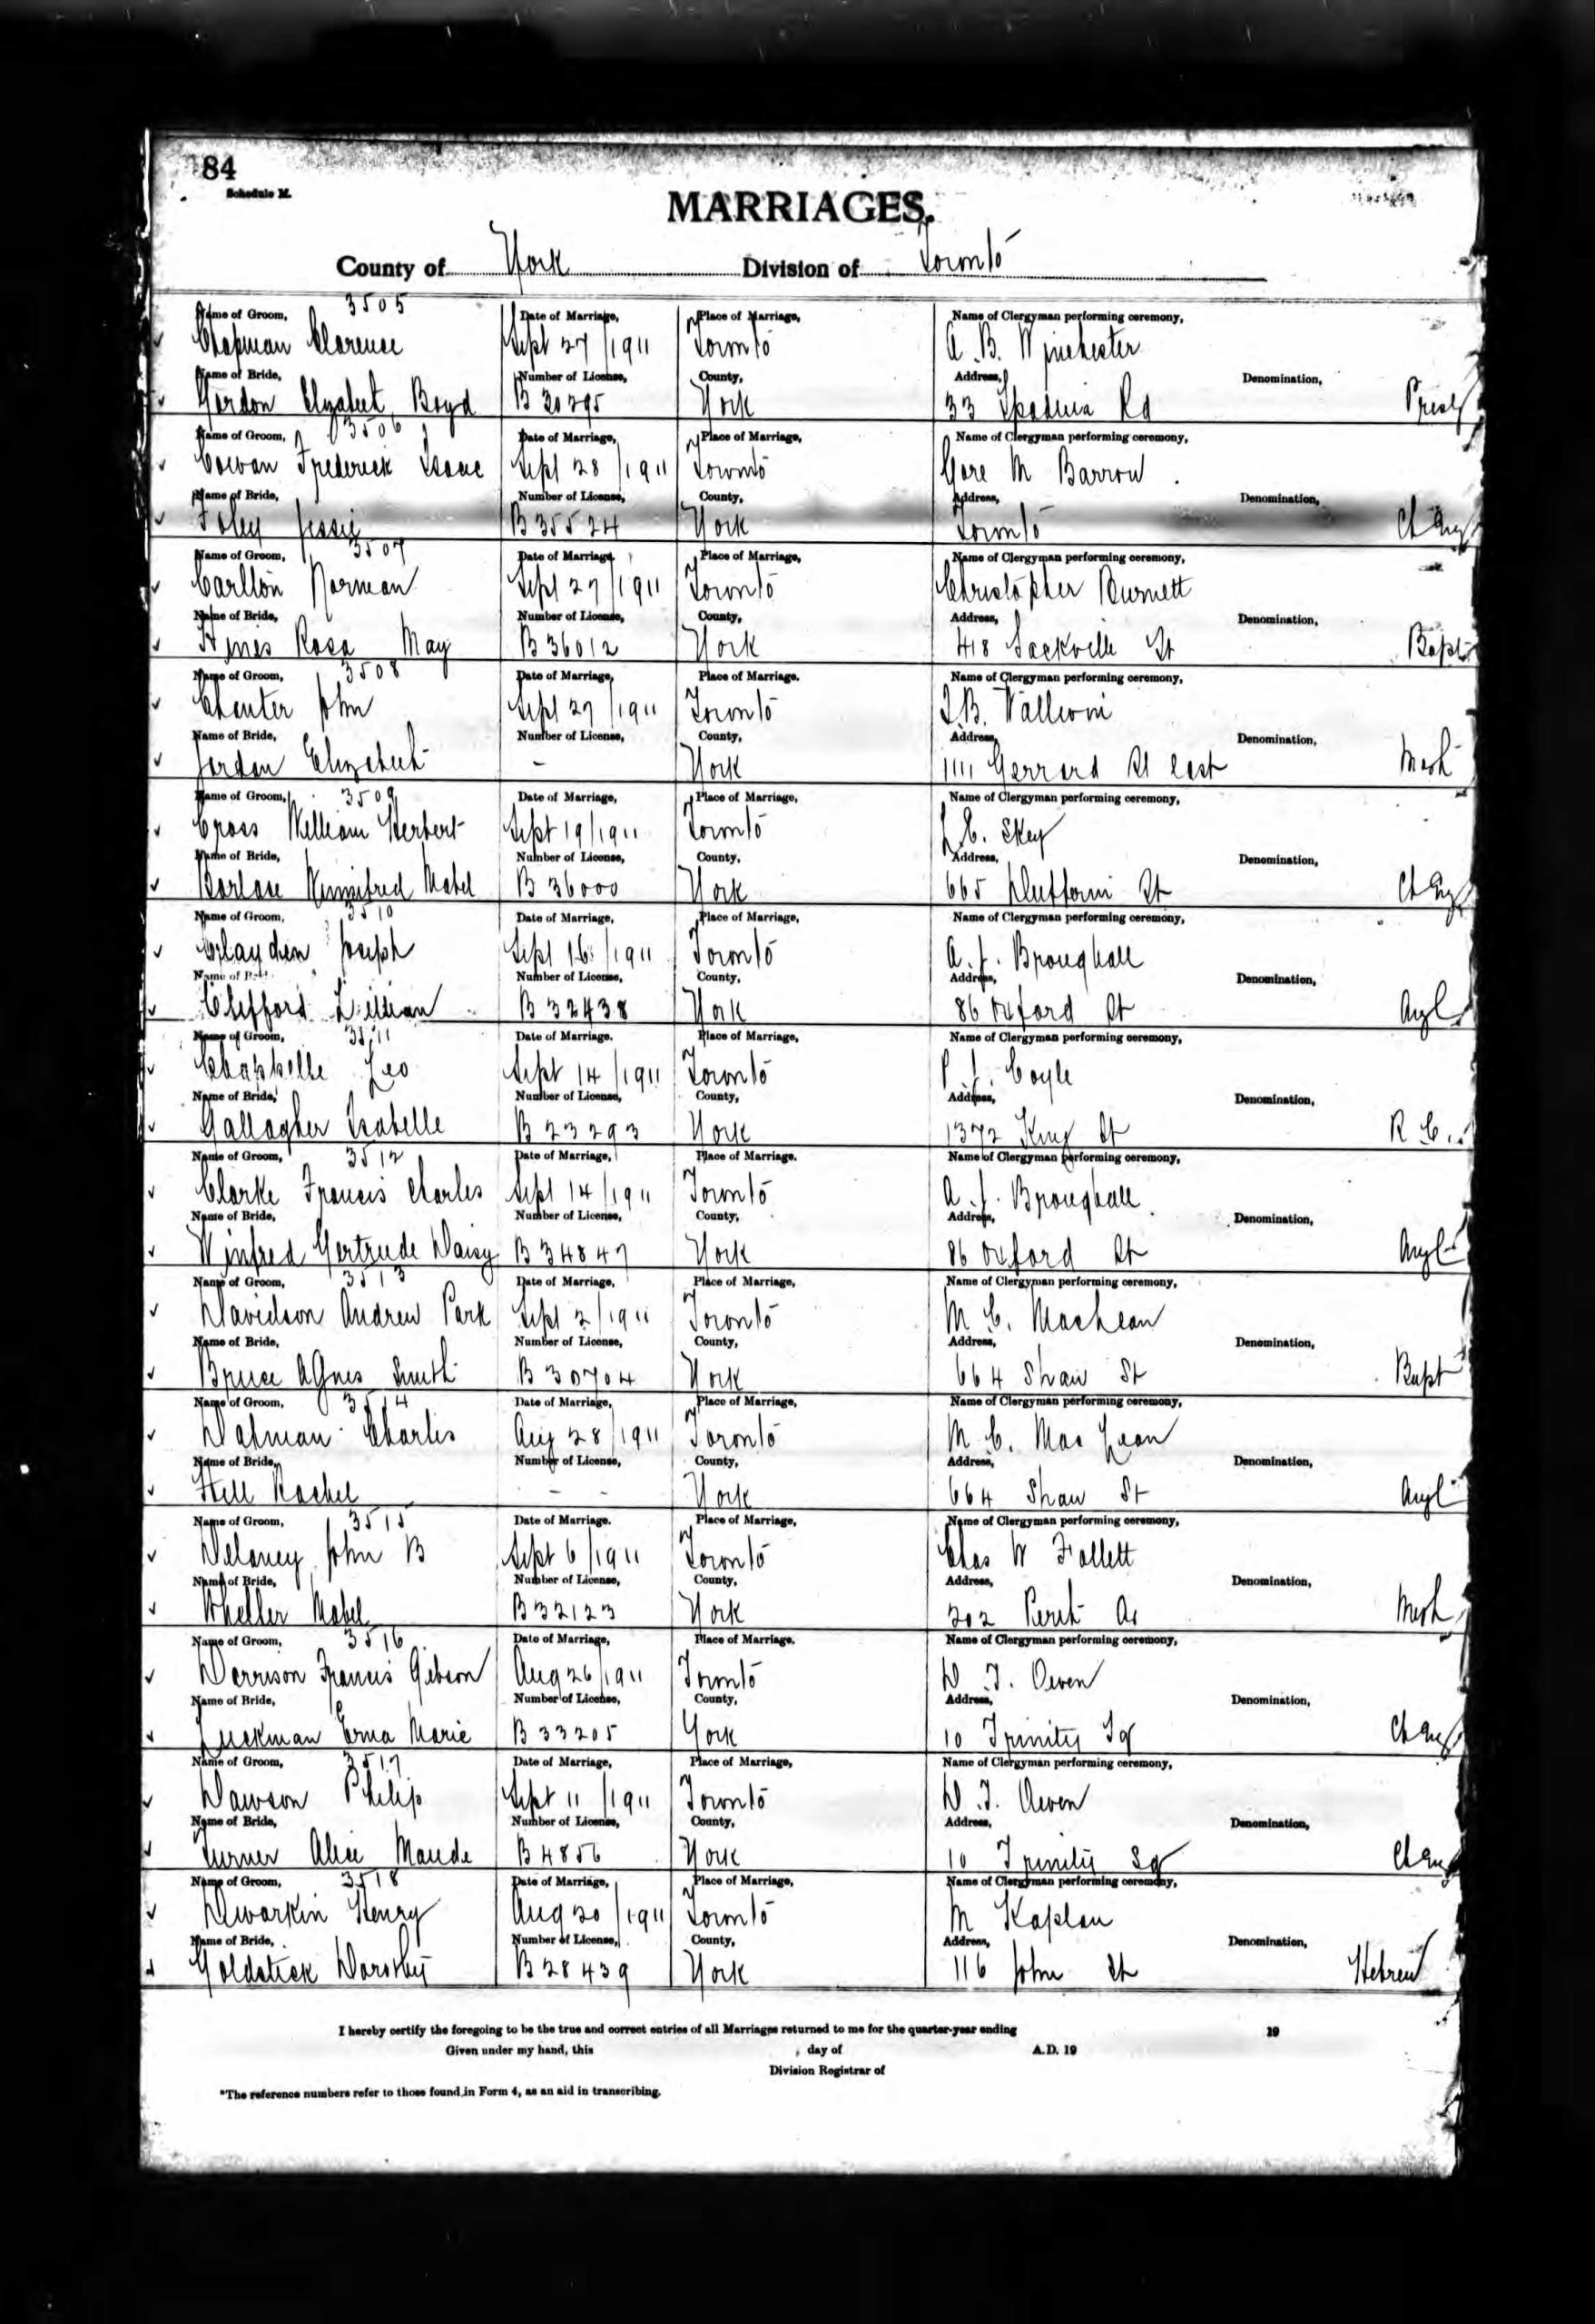 84
Schedule M.
MARRIAGES.
County of York Division of Toronto
3505
Name of Groom, Date of Marriage, Place of Marriage, Name of Clergyman performing ceremony,
Chapman Clarence Sept 27/1911 Toronto A. B. Winchester
Name of Bride, Number of License, County, Address, Denomination,
Gordon Elizabeth Boyd B 30295 York 33 Spadina Rd Presby
3506
Name of Groom, Date of Marriage, Place of Marriage, Name of Clergyman performing ceremony,
Cowan Frederick Isaac Sept 28/1911 Toronto Gore M Barrow
Name of Bride, Number of License, County, Address, Denomination,
Foley Jessie B 35524 York Toronto Ch Eng
3507
Name of Groom, Date of Marriage, Place of Marriage, Name of Clergyman performing ceremony,
Carlton Norman Sept 27/1911 Toronto Christopher Burnett
Name of Bride, Number of License, County, Address, Denomination,
Hynes Rosa May B 36012 York 418 Sackville St Bapt
3508
Name of Groom, Date of Marriage, Place of Marriage. Name of Clergyman performing ceremony,
Chanter John Sept 27/1911 Toronto
Name of Bride, Number of License, County, Address, Denomination,
Jordan Elizabeth - York 1111 Gerrard St East Meth
3509
Name of Groom, Date of Marriage, Place of Marriage, Name of Clergyman performing ceremony,
Cross William Herbert Sept 19/1911 Toronto L. E. Skey
Name of Bride, Number of License, County, Address, Denomination,
Borlase Winnifred Mabel B 36000 York 665 Dufferin St Ch Eng
3510
Name of Groom, Date of Marriage, Place of Marriage, Name of Clergyman performing ceremony,
Clayden Joseph Sept 16/1911 Toronto A. J. Broughall
Name of Bride, Number of License, County, Address, Denomination,
Clifford Lillian B 32438 York 86 Oxford St Angl
3511
Name of Groom, Date of Marriage. Place of Marriage, Name of Clergyman performing ceremony,
Chappelle Leo Sept 14/1911 Toronto P. J. Coyle
Name of Bride, Number of License, County, Address, Denomination,
Gallagher Isabelle B 23293 York 1372 King St R C.
3512
Name of Groom, Date of Marriage, Place of Marriage. Name of Clergyman performing ceremony,
Clarke Francis Charles Sept 14/1911 Toronto A. J. Broughall
Name of Bride, Number of License, County, Address, Denomination,
Winfred Gertrude Daisy B 34847 York 86 Oxford St Angl
3513
Name of Groom, Date of Marriage, Place of Marriage, Name of Clergyman performing ceremony,
Davidson Andrew Park Sept 2/1911 Toronto M C. MacLean
Name of Bride, Number of License, County, Address, Denomination,
Bruce Agnes Smith B 30704 York 664 Shaw St Bapt
3514
Name of Groom, Date of Marriage, Place of Marriage, Name of Clergyman performing ceremony,
Datman Charles Aug 28/1911 Toronto M. C. Mac Lean
Name of Bride, Number of License, County, Address, Denomination,
Hell Rachel - - York 664 Shaw St Angl
3515
Name of Groom, Date of Marriage. Place of Marriage, Name of Clergyman performing ceremony,
Delaney John B Sept 6/1911 Toronto Chas W Follett
Name of Bride, Number of License, County, Address, Denomination,
Wheller Mabel B 32123 York 202 Perth Av Meth
3516
Name of Groom, Date of Marriage, Place of Marriage. Name of Clergyman performing ceremony,
Derrison Francis Gibson Aug 26/1911 Toronto D. T. Owen
Name of Bride, Number of License, County, Address, Denomination,
Luckman Erna Marie B 33205 York 10 Trinity Sq Ch Eng
3517
Name of Groom, Date of Marriage, Place of Marriage, Name of Clergyman performing ceremony,
Dawson Philip Sept 11/1911 Toronto D. T. Owen
Name of Bride, Number of License, County, Address, Denomination,
Turner Alice Maude B 4856 York 10 Trinity Sq Ch Eng
3518
Name of Groom, Date of Marriage, Place of Marriage, Name of Clergyman performing ceremony,
Dworkin Henry Aug 20/1911 Toronto M Kaplan
Name of Bride, Number of License, County, Address, Denomination,
Goldstick Dorothy B 28439 York 116 John St Hebrew
I hereby certify the foregoing to be the true and correct entries of all Marriages returned to me for the quarter-year ending 19
Given under my hand, this day of A.D. 19
Division Registrar of
*The reference numbers refer to those found in Form 4, as an aid in transcribing.